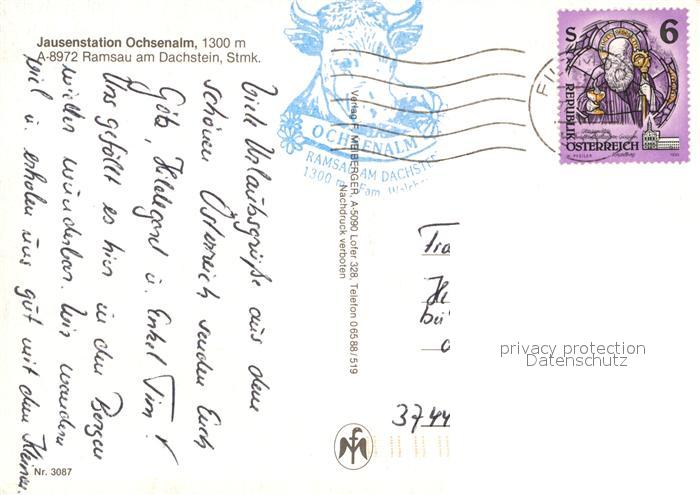 Jausenstation Ochsenalm, 1300 m
A-8972 Ramsau am Dachstein, Stmk.
Viele Urlaubsgrüße aus dem
schönen Österreich senden Euch
Götz, Hildegard u. Enkel Tim!
Uns gefällt es hier in den Bergen
wieder wunderbar. Wir wandern
viel u. erholen uns gut mit dem Kleinen.
Nr. 3087
OCHSENALM
RAMSAU AM DACHSTE
1300 m Fam.
Verlag F. MEIBERGER, A-5090 Lofer 328, Telefon 06588/519
Nachdruck verboten
S 6
REPUBLIK
ÖSTERREICH
PFEILER
Fra
He
bei
3744
privacy protection
Datenschutz